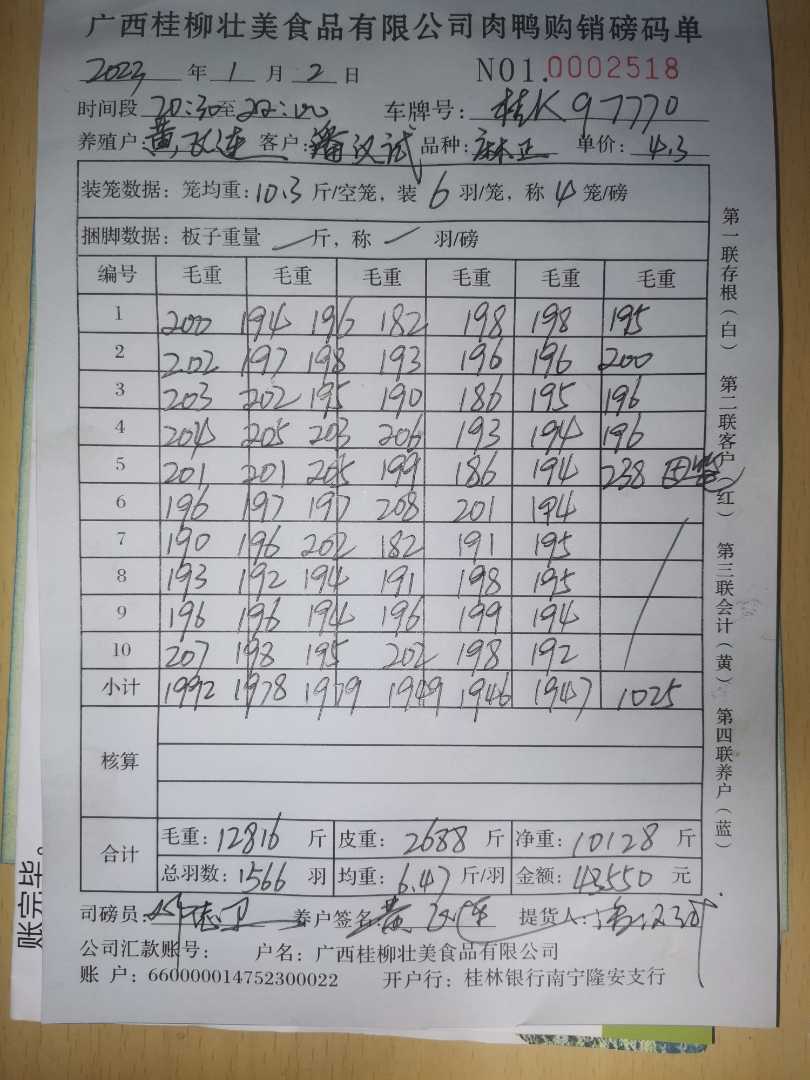 广西桂柳壮美食品有限公司肉鸭购销磅码单
2023 年 1 月 2 日 NO1.0002518
时间段 20:30至22:00 车牌号: 桂K97770
养殖户: 黄 连 客户: 潘汉试 品种: 麻正 单价: 4.3
装笼数据: 笼均重: 10.3 斤/空笼, 装 6 羽/笼, 称 4 笼/磅
捆脚数据: 板子重量 斤, 称 羽/磅
编号 毛重 毛重 毛重 毛重 毛重 毛重
1 200 194 196 182 198 198 195
2 202 197 198 193 196 196 200
3 203 202 195 190 186 195 196
4 204 205 203 206 193 194 196
5 201 201 205 199 186 194 238
6 196 197 197 208 201 194
7 190 196 202 182 191 195
8 193 192 194 191 198 195
9 196 196 194 196 199 194
10 207 198 195 202 198 192
小计 1992 1978 1979 1949 1946 1947 1025
核算
合计 毛重: 12816 斤 皮重: 2688 斤 净重: 10128 斤
总羽数: 1566 羽 均重: 6.47 斤/羽 金额: 43550 元
司磅员: 养户签名: 黄 连 提货人:
公司汇款账号: 户名: 广西桂柳壮美食品有限公司
账 户: 660000014752300022 开户行: 桂林银行南宁隆安支行
第一联存根(白) 第二联客户(红) 第三联会计(黄) 第四联养户(蓝)
账完毕。